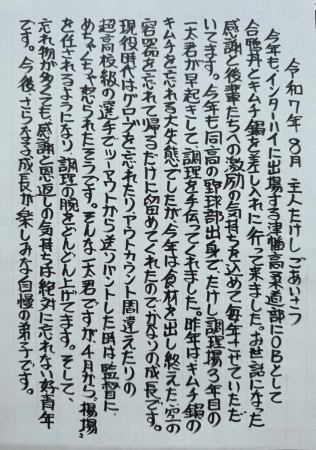 令和7年8月 主人たけしごあいさつ
今年もインターハイに出場する津幡高柔道部にOBとして
合鴨丼とキムチ鍋を差し入れに行って来ました。お世話になった
感謝と後輩たちへの激励の気持ちを込めて毎年させていただ
いてます。今年も同高の野球部出身で、たけし調理場3年目の
一太君が早起きして、調理を手伝ってくれました。昨年はキムチ鍋の
キムチを忘れる大失態でしたが、今年は食材を出し終えた空の
容器を忘れて帰るだけに留めてくれたので、かなりの成長です。
現役時代はグローブを忘れたり、アウトカウント間違えたりの
超高校級の選手で、ツーアウトから送りバントした時は監督に、
めちゃくちゃ怒られたそうです。そんな一太君ですが、4月から、揚場
を任されるようになり、調理の腕をどんどん上げてきます。そして、
忘れ物が多くても、感謝と恩返しの気持ちは絶対に忘れない好青年
です。今後、さらなる成長が楽しみな自慢の弟子です。